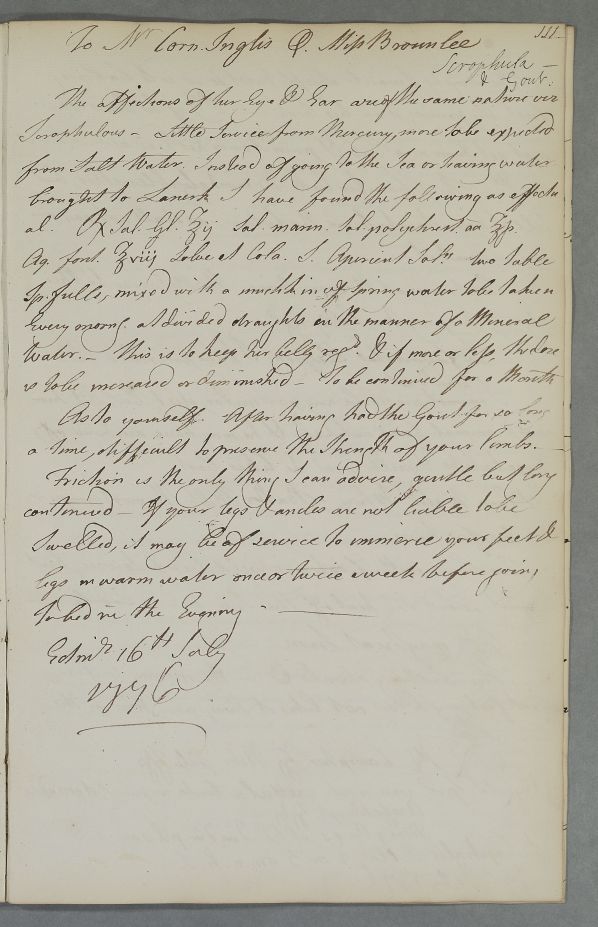 111
To Mr Corn. Inglis Q. Miss Brownlee
Scrophula –
& Gout.
The affections of her Eye & Ear are of the same nature viz
Scrophulous – Little Service from Mercury, more to be expected
from Salt Water. Instead of going to the Sea or having water
brought to Lanerk I have found the following as effectu
al. Rx Sal. Gl. ʒij Sal. mann. Sal. polychrest. aa ʒp.
Aq. font. ʒviij Solve et Cola. S. Aperient Sol:n two table
Sp. fulls, mixed with a mutchkin of Spring water to be taken
Every morng. at divided draughts in the manner of a Mineral
Water. – This is to keep her belly regr. & if more or less the dose
is to be increased or diminished – To be continued for a Month
As to yourself. After having had the Gout for so long
a time, difficult to preserve the Strength of your limbs. –
Friction is the only thing I can advise, gentle but long
continued – If your legs & ancles are not liable to be
Swelled, it may be of service to immerse your feet &
legs in warm water once or twice a week before going
to bed in the Evening –
Edinr. 16th July
1776